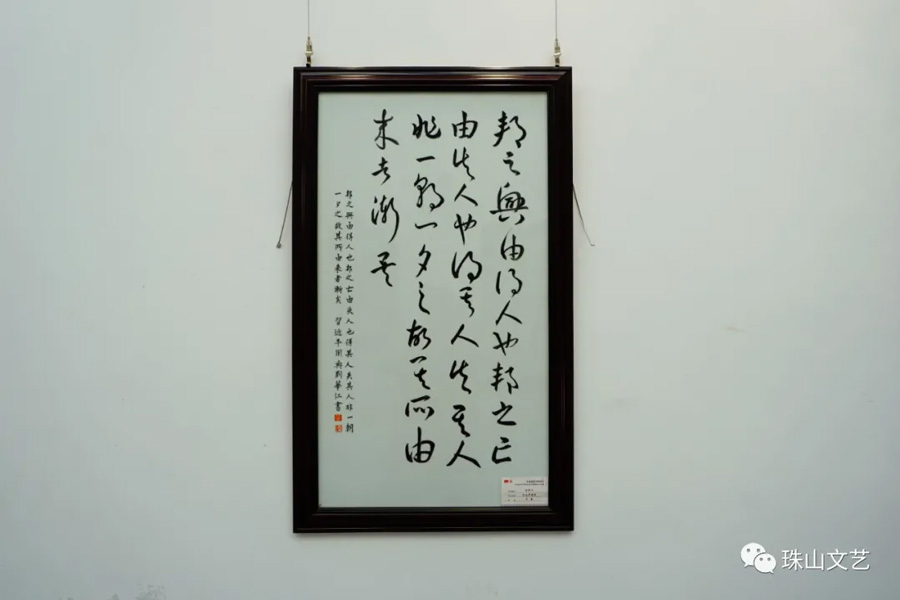 邦之興由得人也邦之亡
由失人也得其人失其人
非一朝一夕之故其所由
來者漸矣
邦之興由得人也邦之亡由失人也得其人失其人非一朝
一夕之故其所由來者漸矣 習近平用典劉華江書
珠山文艺